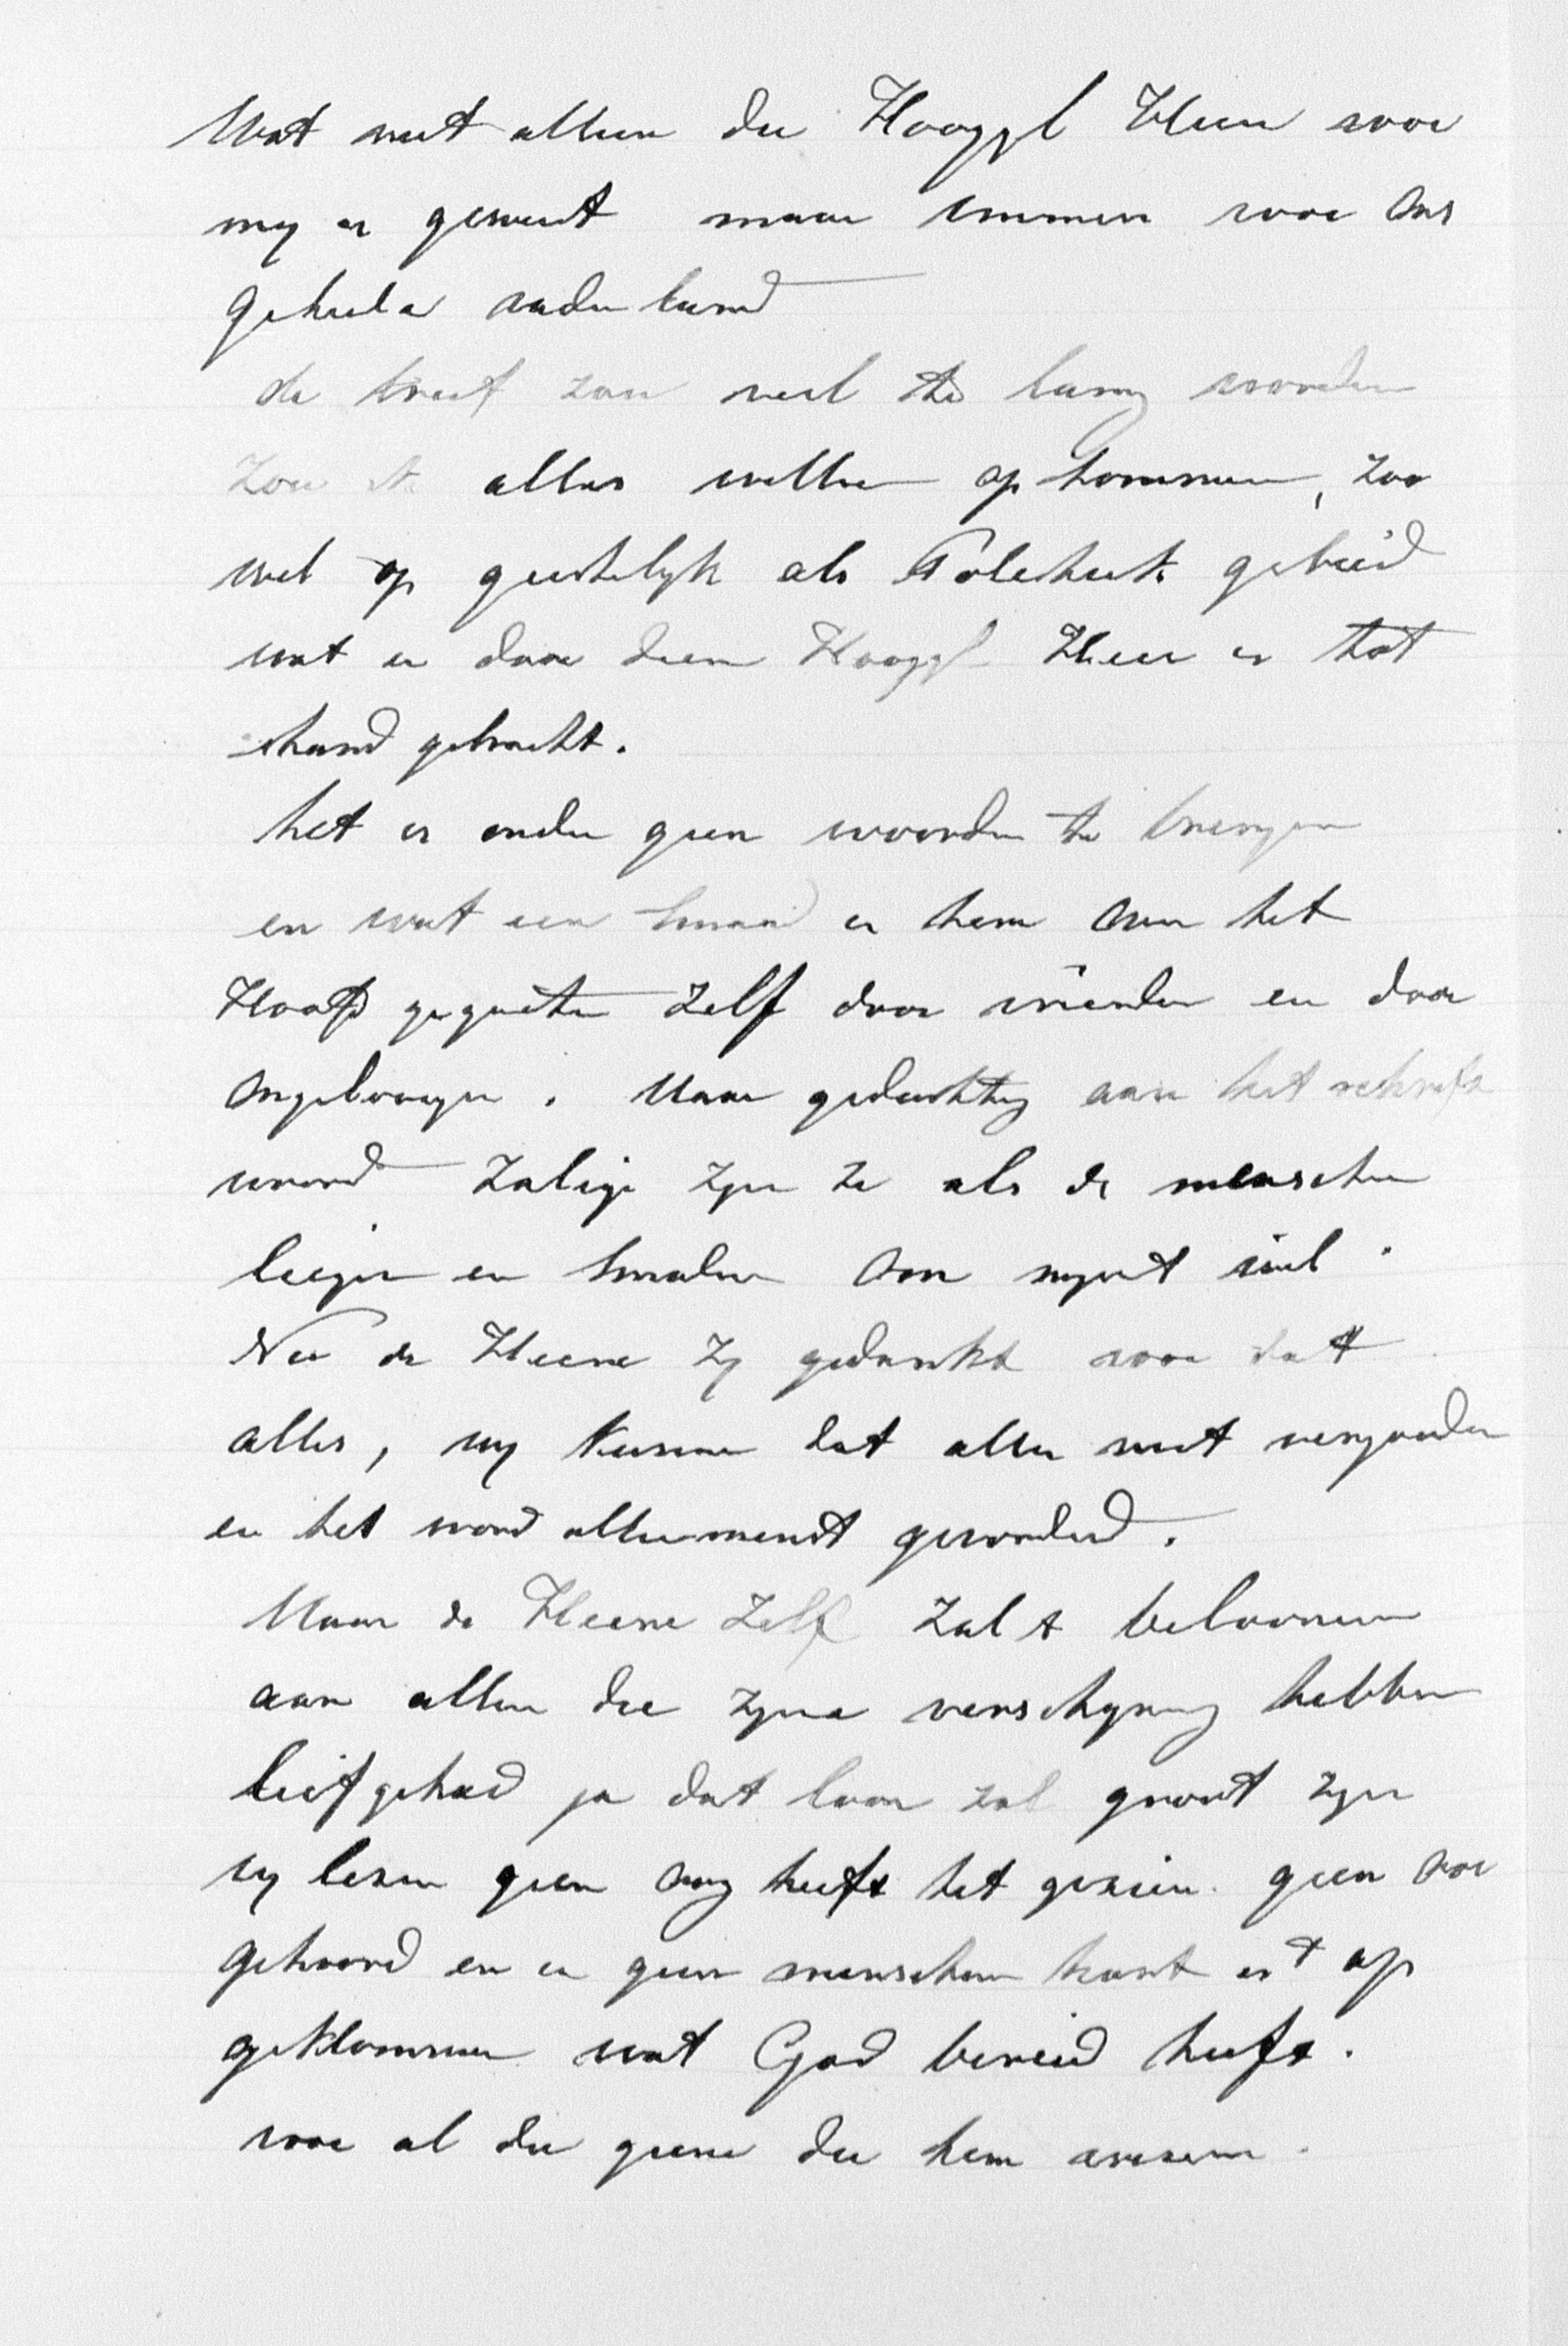 Wat niet alleen die Hooggl Heer voor
my is geweest maar immers voor Ons
geheele vaderland
de brief zou veel te lang worden
Zou ik alles willen op kommen, zoo
wel op geestelyk als Poletiek gebied
wat er door dien Hooggl Heer is tot
stand gebracht.
het is onder geen woorden te brengen
en wat een smaad is hem Over het
Hoofd gegoten Zelf door vrienden en door
ongeloovigen. Maar gedachtig aan het schrift
woord Zalige zyn ze als de menschen
liegen en smaden Om mynt wiel.
Nu de Heere Zy gedankt voor dat
alles, wy kunnen dat alles niet vergoeden
en het word alleenmenst gevorderd.
Maar de Heere Zelf Zal t beloonen
aan allen die zyne verschyning hebben
liefgehad ja dat loon zal groot zyn
wy lezen geen oog heeft het gezien. geen oor
gehoord en in geen menschen hart ist op
geklommen wat God bereid heeft.
voor al die geene die hem vreesen.